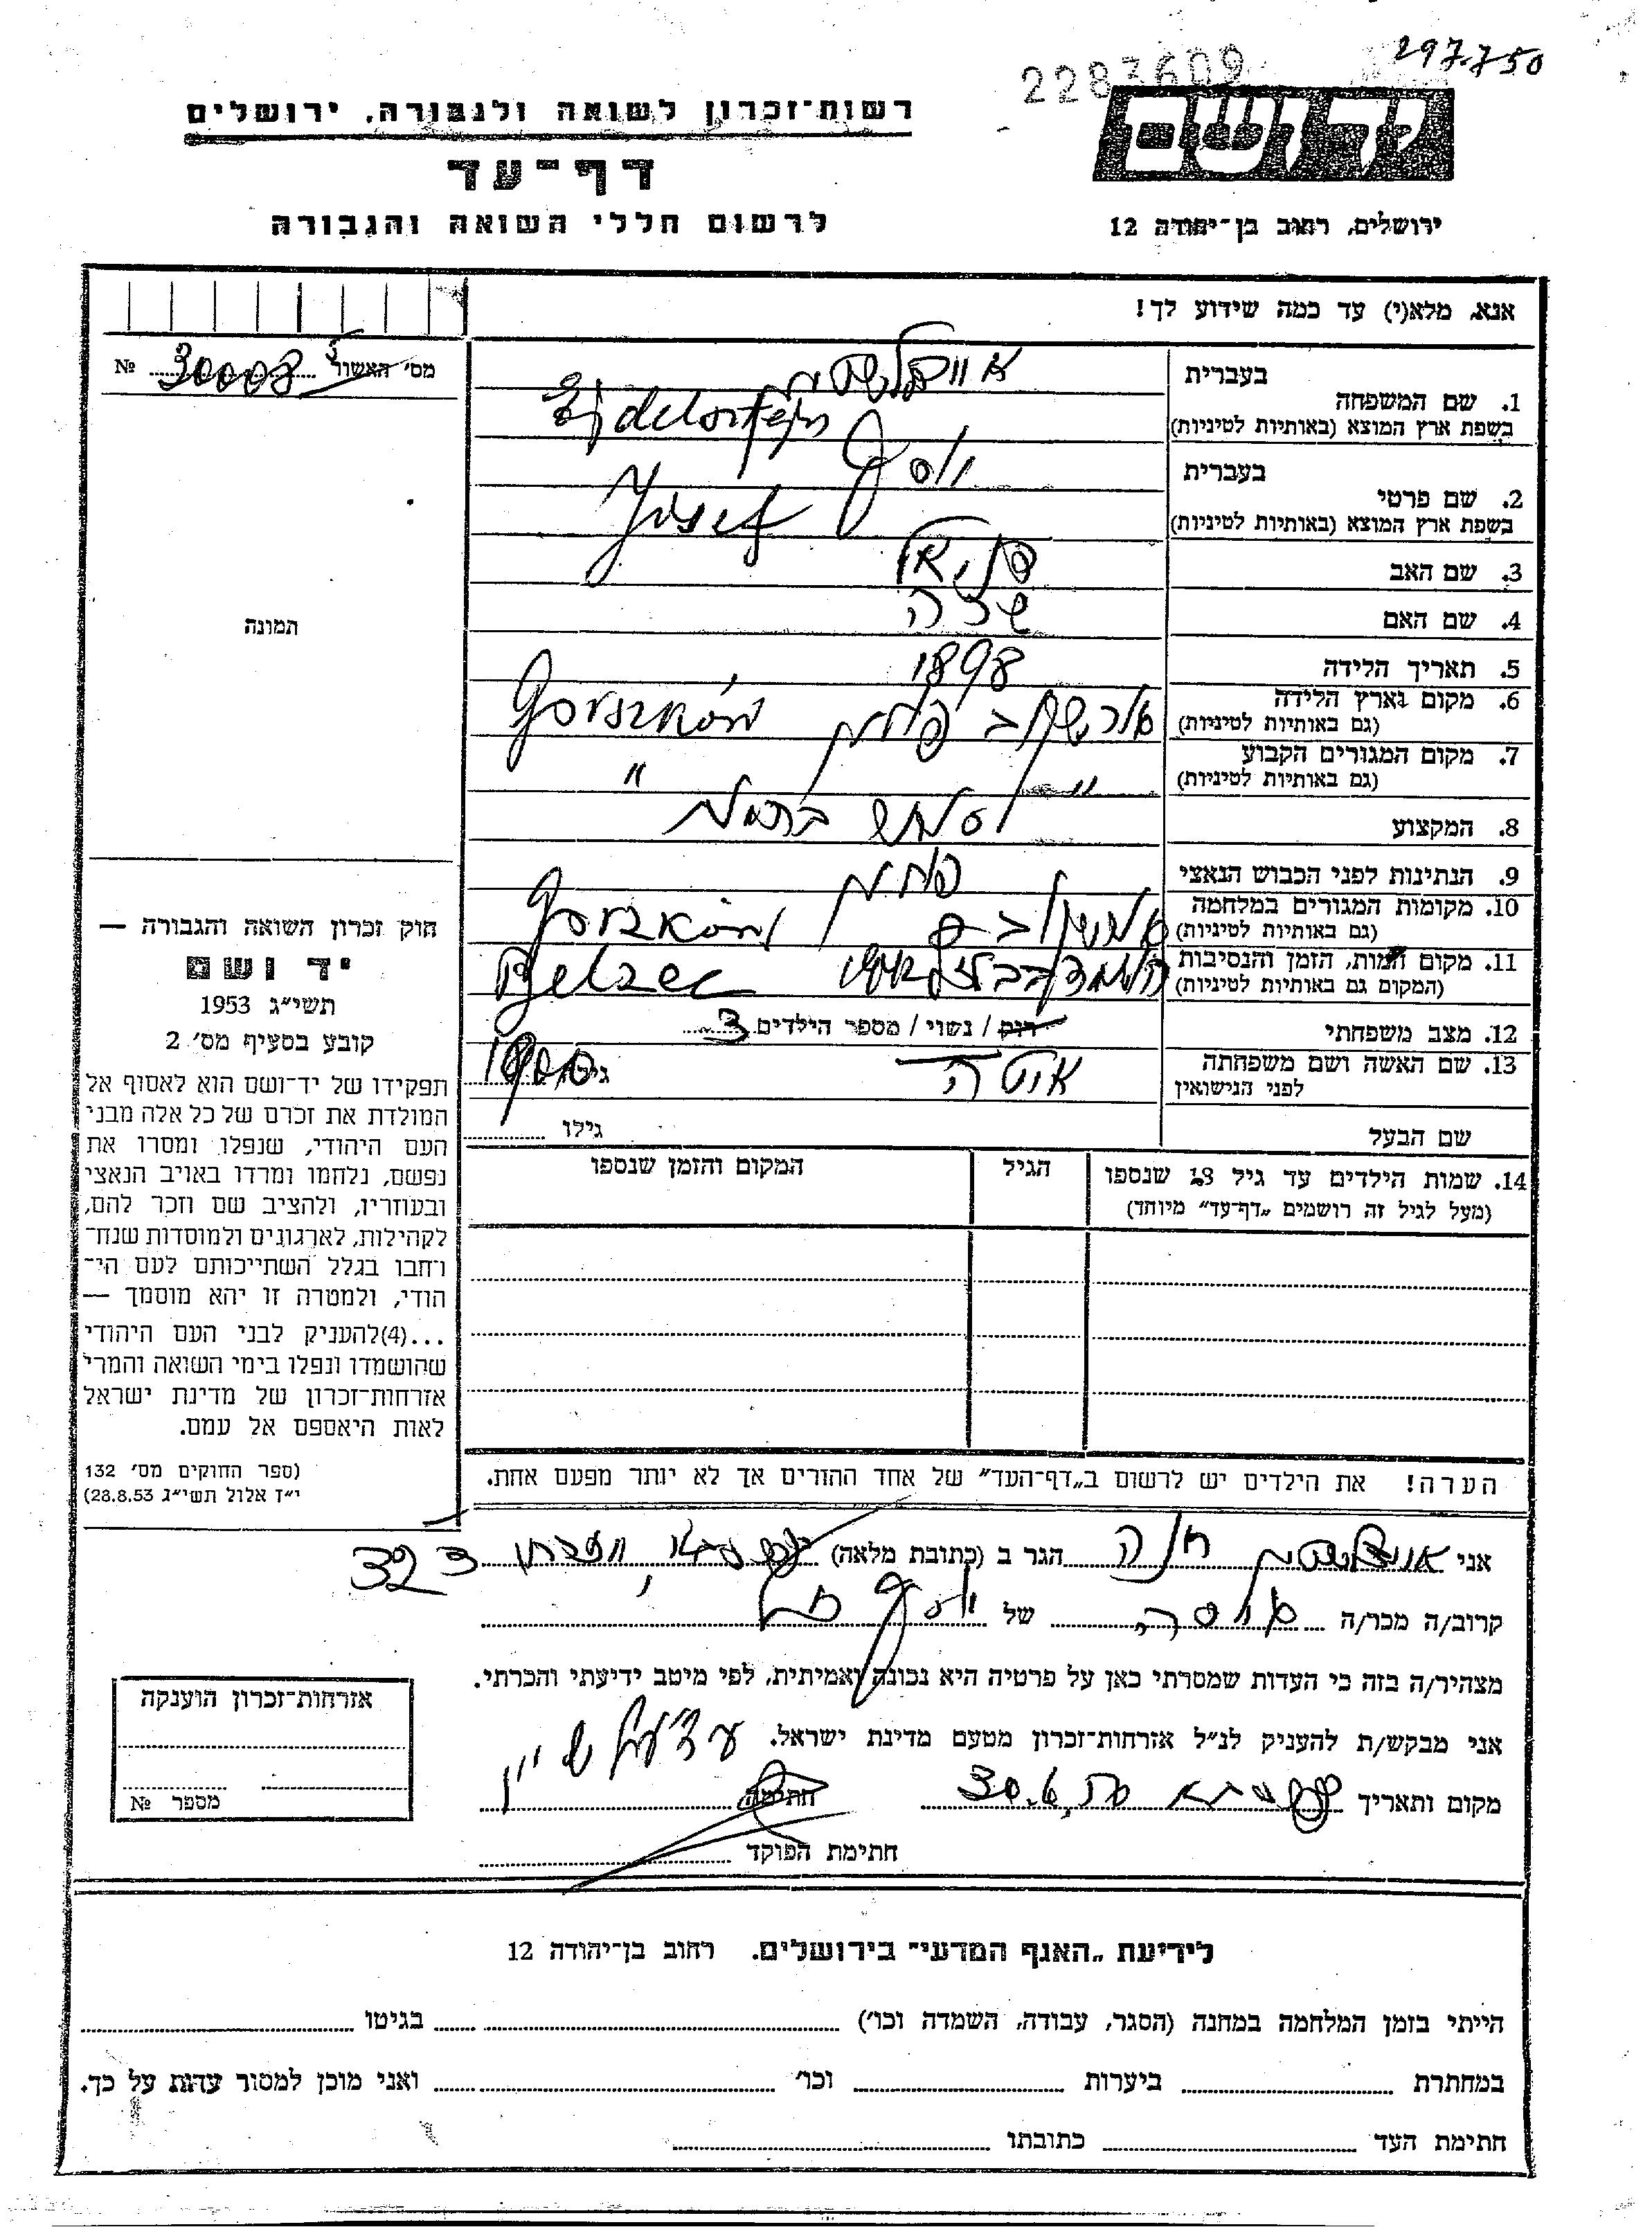 297.750
2283609
ידושם
ירושלים, רחוב בן־יהודה 12
רשות־זכרון לשואה ולגבורה, ירושלים
דף־עד
לרשום חללי השואה והגבורה
אנא, מלא(י) עד כמה שידוע לך!
מס' האשור № 30008
בעברית
1. שם המשפחה
בשפת ארץ המוצא (באותיות לטיניות) Ejdelsztejn
בעברית יוסף
2. שם פרטי
בשפת ארץ המוצא (באותיות לטיניות) Josef
3. שם האב
4. שם האם שרה
5. תאריך הלידה 1898
6. מקום וארץ הלידה פולין Gorszków
(גם באותיות לטיניות)
7. מקום המגורים הקבוע " "
(גם באותיות לטיניות)
8. המקצוע
9. הנתינות לפני הכבוש הנאצי פולין
10. מקומות המגורים במלחמה Gorszków
(גם באותיות לטיניות)
11. מקום המות, הזמן והנסיבות Belzec
(המקום גם באותיות לטיניות)
12. מצב משפחתי רווק / נשוי / מספר הילדים 3
13. שם האשה ושם משפחתה
לפני הנישואין
גילה
שם הבעל גילו
14. שמות הילדים עד גיל 18 שנספו הגיל המקום והזמן שנספו
(מעל לגיל זה רושמים „דף־עד" מיוחד)
הערה! את הילדים יש לרשום ב„דף־העד" של אחד ההורים אך לא יותר מפעם אחת.
תמונה
חוק זכרון השואה והגבורה —
יד ושם
תשי״ג 1953
קובע בסעיף מס׳ 2
תפקידו של יד־ושם הוא לאסוף אל
המולדת את זכרם של כל אלה מבני
העם היהודי, שנפלו ומסרו את
נפשם, נלחמו ומרדו באויב הנאצי
ובעוזריו, ולהציב שם וזכר להם,
לקהילות, לארגונים ולמוסדות שנח־
רחבו בגלל השתייכותם לעם הי־
הודי, ולמטרה זו יהא מוסמך —
...(4)להעניק לבני העם היהודי
שהושמדו ונפלו בימי השואה והמרי
אזרחות־זכרון של מדינת ישראל
לאות היאספם אל עמם.
(ספר החוקים מס׳ 132
י״ז אלול תשי״ג 28.8.53)
אני חנה הגר ב (כתובת מלאה) 323
קרוב/ה מכר/ה של יוסף
מצהיר/ה בזה כי העדות שמסרתי כאן על פרטיה היא נכונה ואמיתית, לפי מיטב ידיעתי והכרתי.
אני מבקש/ת להעניק לנ״ל אזרחות־זכרון מטעם מדינת ישראל.
מקום ותאריך חתימה
חתימת הפוקד
אזרחות־זכרון הוענקה
מספר №
לידיעת „האגף המדעי" בירושלים. רחוב בן־יהודה 12
הייתי בזמן המלחמה במחנה (הסגר, עבודה, השמדה וכו׳) בגיטו
במחתרת ביערות וכו׳ ואני מוכן למסור עדות על כך.
חתימת העד כתובתו